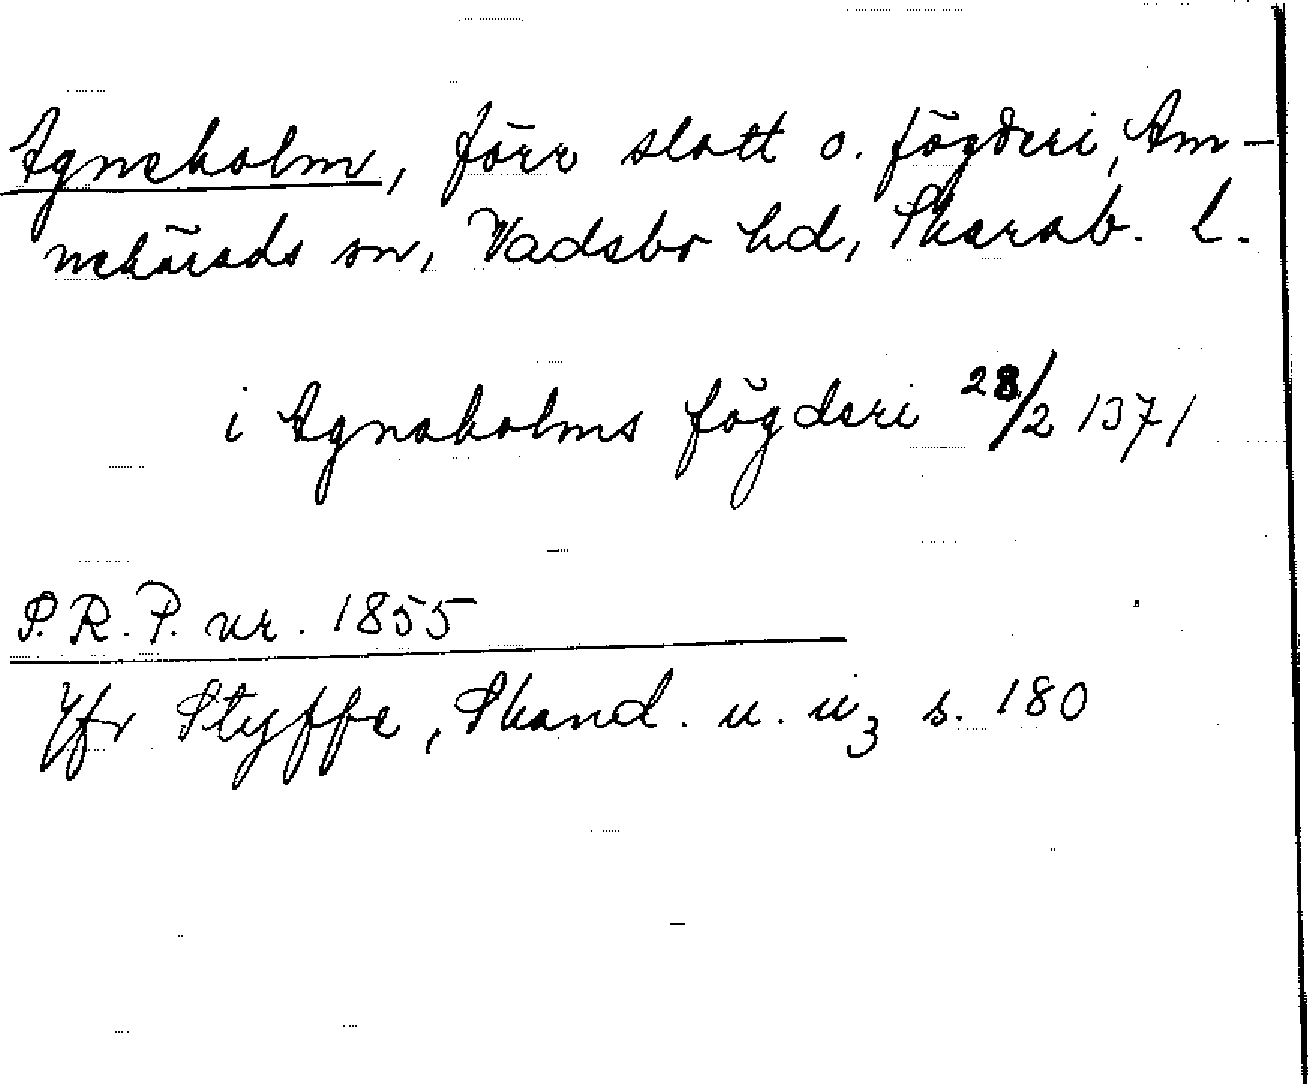 Agneholm, förr slott o. fögderi, Am-
nehärads sn, Vadsbo hd, Skarab. l.
i Agnaholms fögderi 28/2 1371
P.R.P. nr. 1855
Jfr Styffe, Skand. u. u₃ s. 180